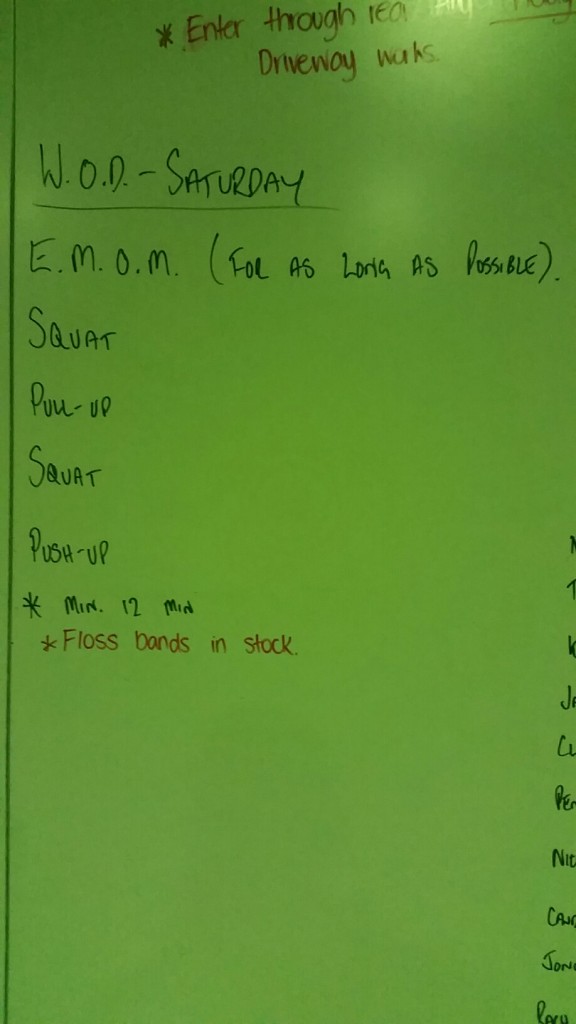 * Enter through
Driveway works.
W.O.D. - SATURDAY
E.M.O.M. (FOR AS LONG AS POSSIBLE).
SQUAT
PULL-UP
SQUAT
PUSH-UP
* MIN. 12 MIN
* Floss bands in stock.